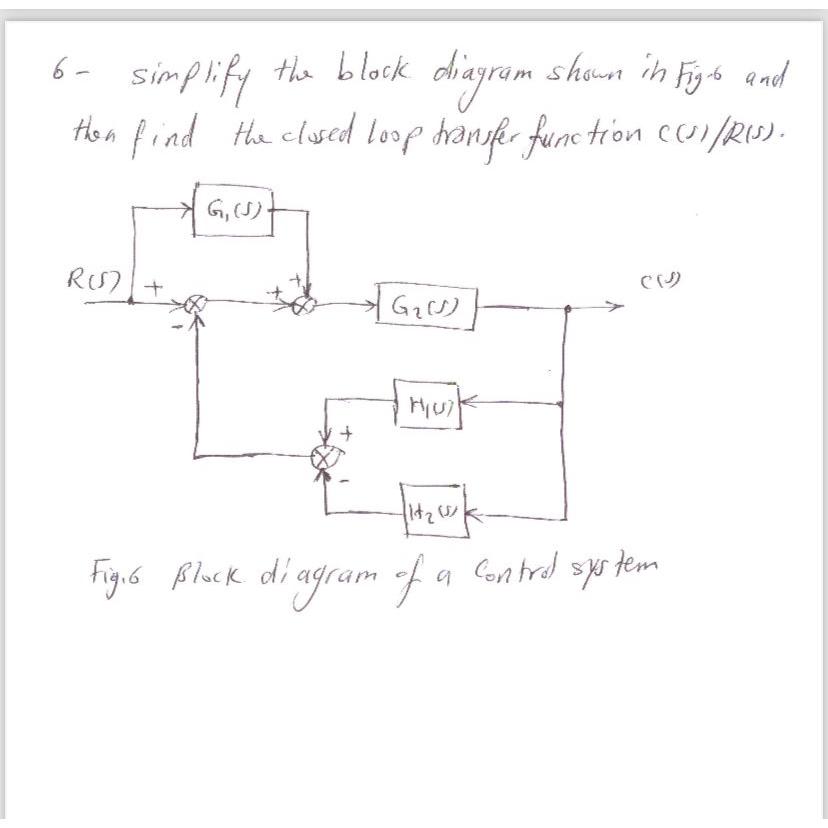 6- simplify the block diagram shown in Fig-6 and
then find the closed loop transfer function C(S)/R(S).
G₁(S)
R(S) +
-
+ +
G₂(S)
C(S)
H₁(S)
+
-
H₂(S)
Fig.6 Block diagram of a Control system